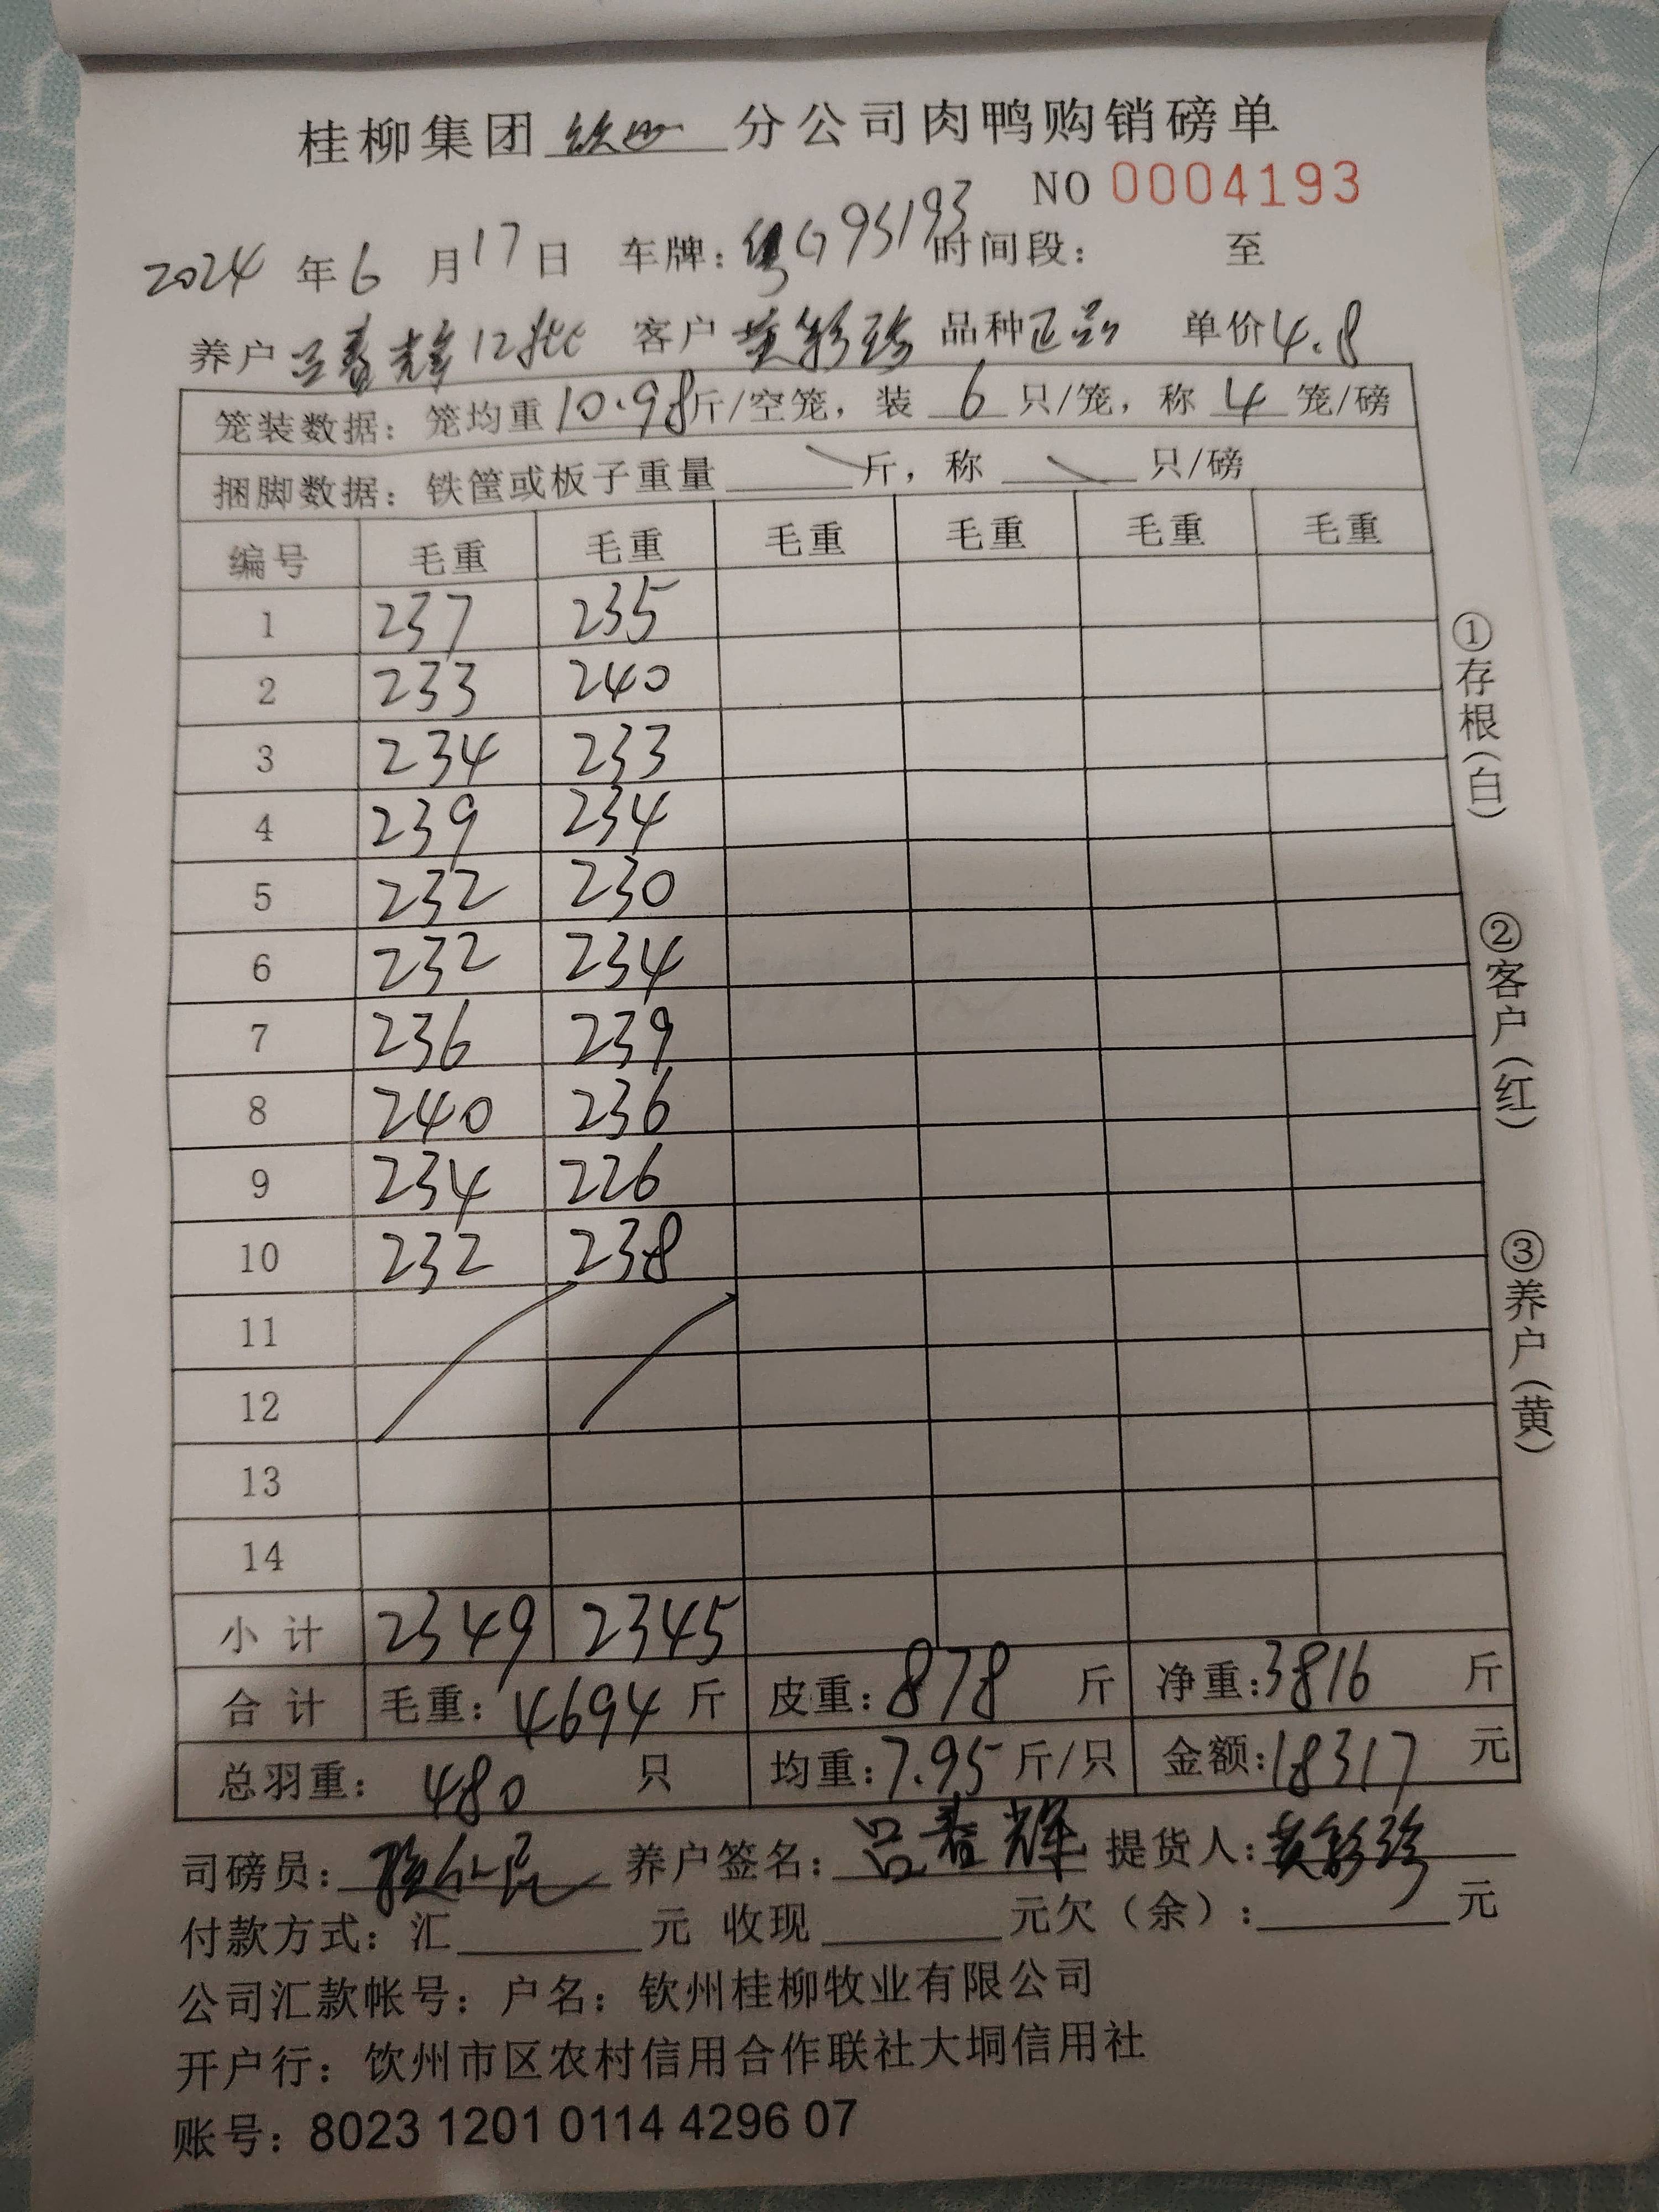 桂柳集团 钦州 分公司肉鸭购销磅单
NO 0004193
2024 年 6 月 17 日 车牌：粤G95193 时间段： 至
养户 吕春辉12批 客户 黄彩珍 品种 正品 单价 4.8
笼装数据：笼均重 10.98 斤/空笼，装 6 只/笼，称 4 笼/磅
捆脚数据：铁筐或板子重量 斤，称 只/磅
编号 毛重 毛重 毛重 毛重 毛重 毛重
1 237 235
2 233 240
3 234 233
4 239 234
5 232 230
6 232 234
7 236 239
8 240 236
9 234 226
10 232 238
11
12
13
14
小计 2349 2345
合计 毛重：4694 斤 皮重：878 斤 净重：3816 斤
总羽重： 480 只 均重：7.95 斤/只 金额：18317 元
司磅员： 养户签名：吕春辉 提货人：黄彩珍
付款方式：汇 元 收现 元欠（余）： 元
公司汇款帐号：户名：钦州桂柳牧业有限公司
开户行：饮州市区农村信用合作联社大垌信用社
账号：8023 1201 0114 4296 07
①存根(白)
②客户(红)
③养户(黄)